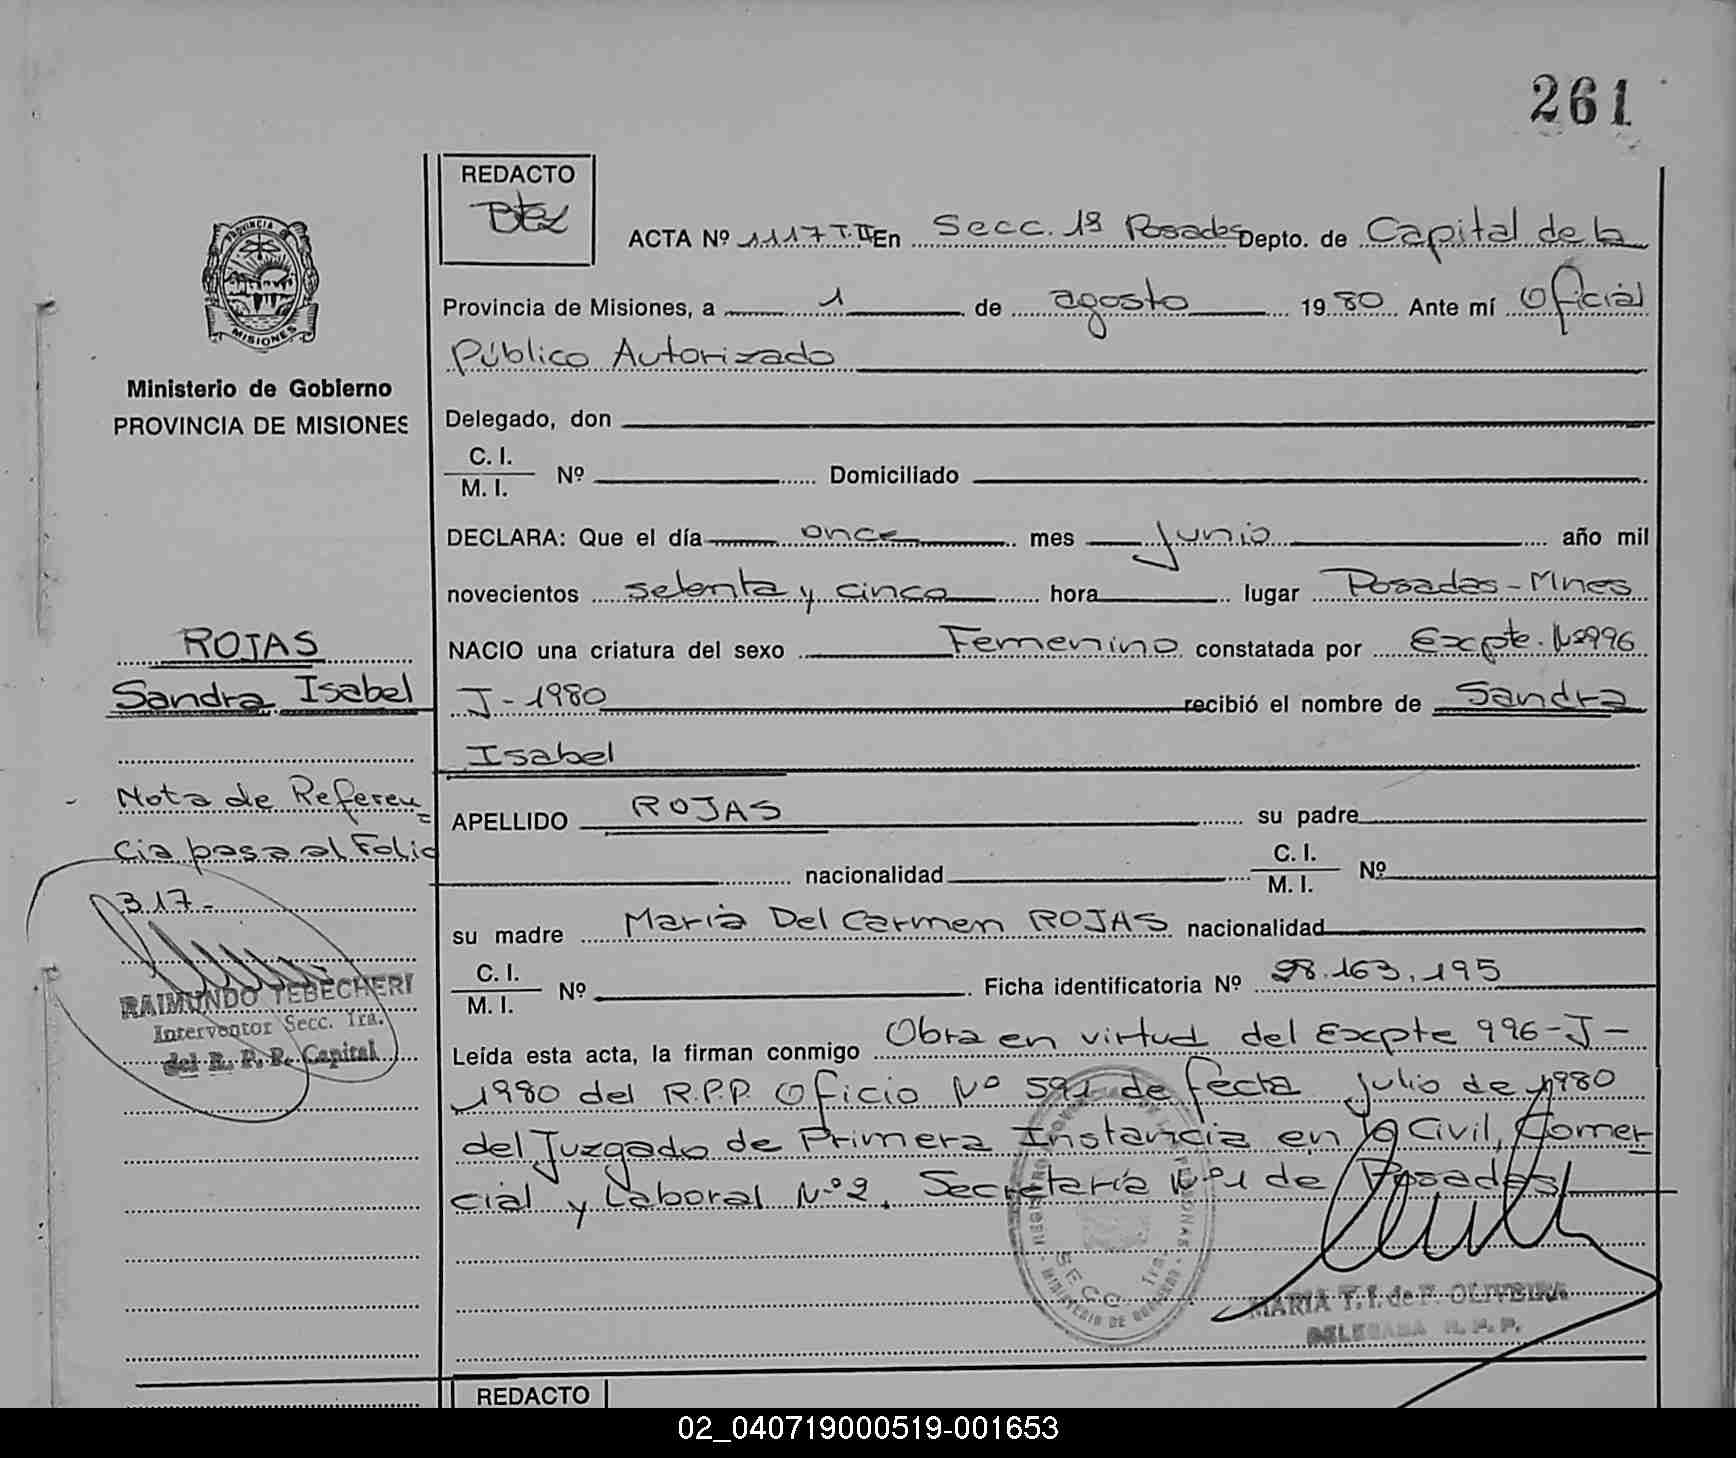 261
REDACTO
PROVINCIA DE
MISIONES
ACTA Nº 1117 T.II En Secc. 1ª Posadas Depto. de Capital de la
Provincia de Misiones, a 1 de agosto 1980 Ante mí Oficial
Público Autorizado
Ministerio de Gobierno
PROVINCIA DE MISIONES
Delegado, don
C. I.
M. I. Nº Domiciliado
DECLARA: Que el día once mes Junio año mil
novecientos setenta y cinco hora lugar Posadas-Mnes
NACIO una criatura del sexo Femenino constatada por Expte. Nº996
J-1980 recibió el nombre de Sandra
Isabel
ROJAS
Sandra Isabel
Nota de Referen=
cia pasa al Folio
317-
RAIMUNDO TEBECHERI
Interventor Secc. 1ra.
del R. P. P. Capital
APELLIDO ROJAS su padre
nacionalidad C. I.
M. I. Nº
su madre Maria Del Carmen ROJAS nacionalidad
C. I.
M. I. Nº Ficha identificatoria Nº 28.163.195
Leída esta acta, la firman conmigo Obra en virtud del Expte 996-J-
1980 del R.P.P. Oficio Nº 591 de fecta Julio de 1980
del Juzgado de Primera Instancia en lo Civil, Comer-
cial y Laboral Nº2. Secretaría Nº1 de Posadas
SECC. 1ra.
MINISTERIO DE GOBIERNO
MARIA T. I. de F. OLIVEIRA
DELEGADA R. P. P.
REDACTO
02_040719000519-001653